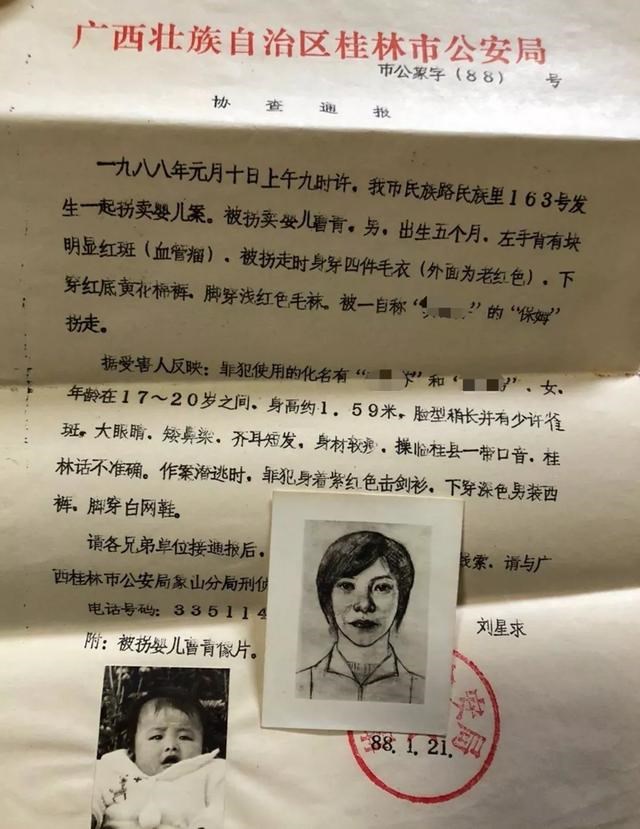 广西壮族自治区桂林市公安局
市公象字(88) 号
协查通报
一九八八年元月十日上午九时许，我市民族路民族里163号发
生一起拐卖婴儿案。被拐卖婴儿曹青。男，出生五个月，左手背有块
明显红斑(血管瘤)，被拐走时身穿四件毛衣(外面为老红色)，下
穿红底黄花棉裤，脚穿浅红色毛袜。被一自称“ ”的“保姆”
拐走。
据受害人反映：罪犯使用的化名有“ ”和“ ”，女，
年龄在17～20岁之间，身高约1.59米，脸型稍长并有少许雀
斑。大眼睛，矮鼻梁，齐耳短发，身材较瘦，操临桂县一带口音，桂
林话不准确。作案潜逃时，罪犯身着紫红色击剑衫，下穿深色男装西
裤，脚穿白网鞋。
请各兄弟单位接通报后， 线索，请与广
西桂林市公安局象山分局刑侦
电话号码：335114 刘星求
附：被拐婴儿曹青像片。
88.1.21.